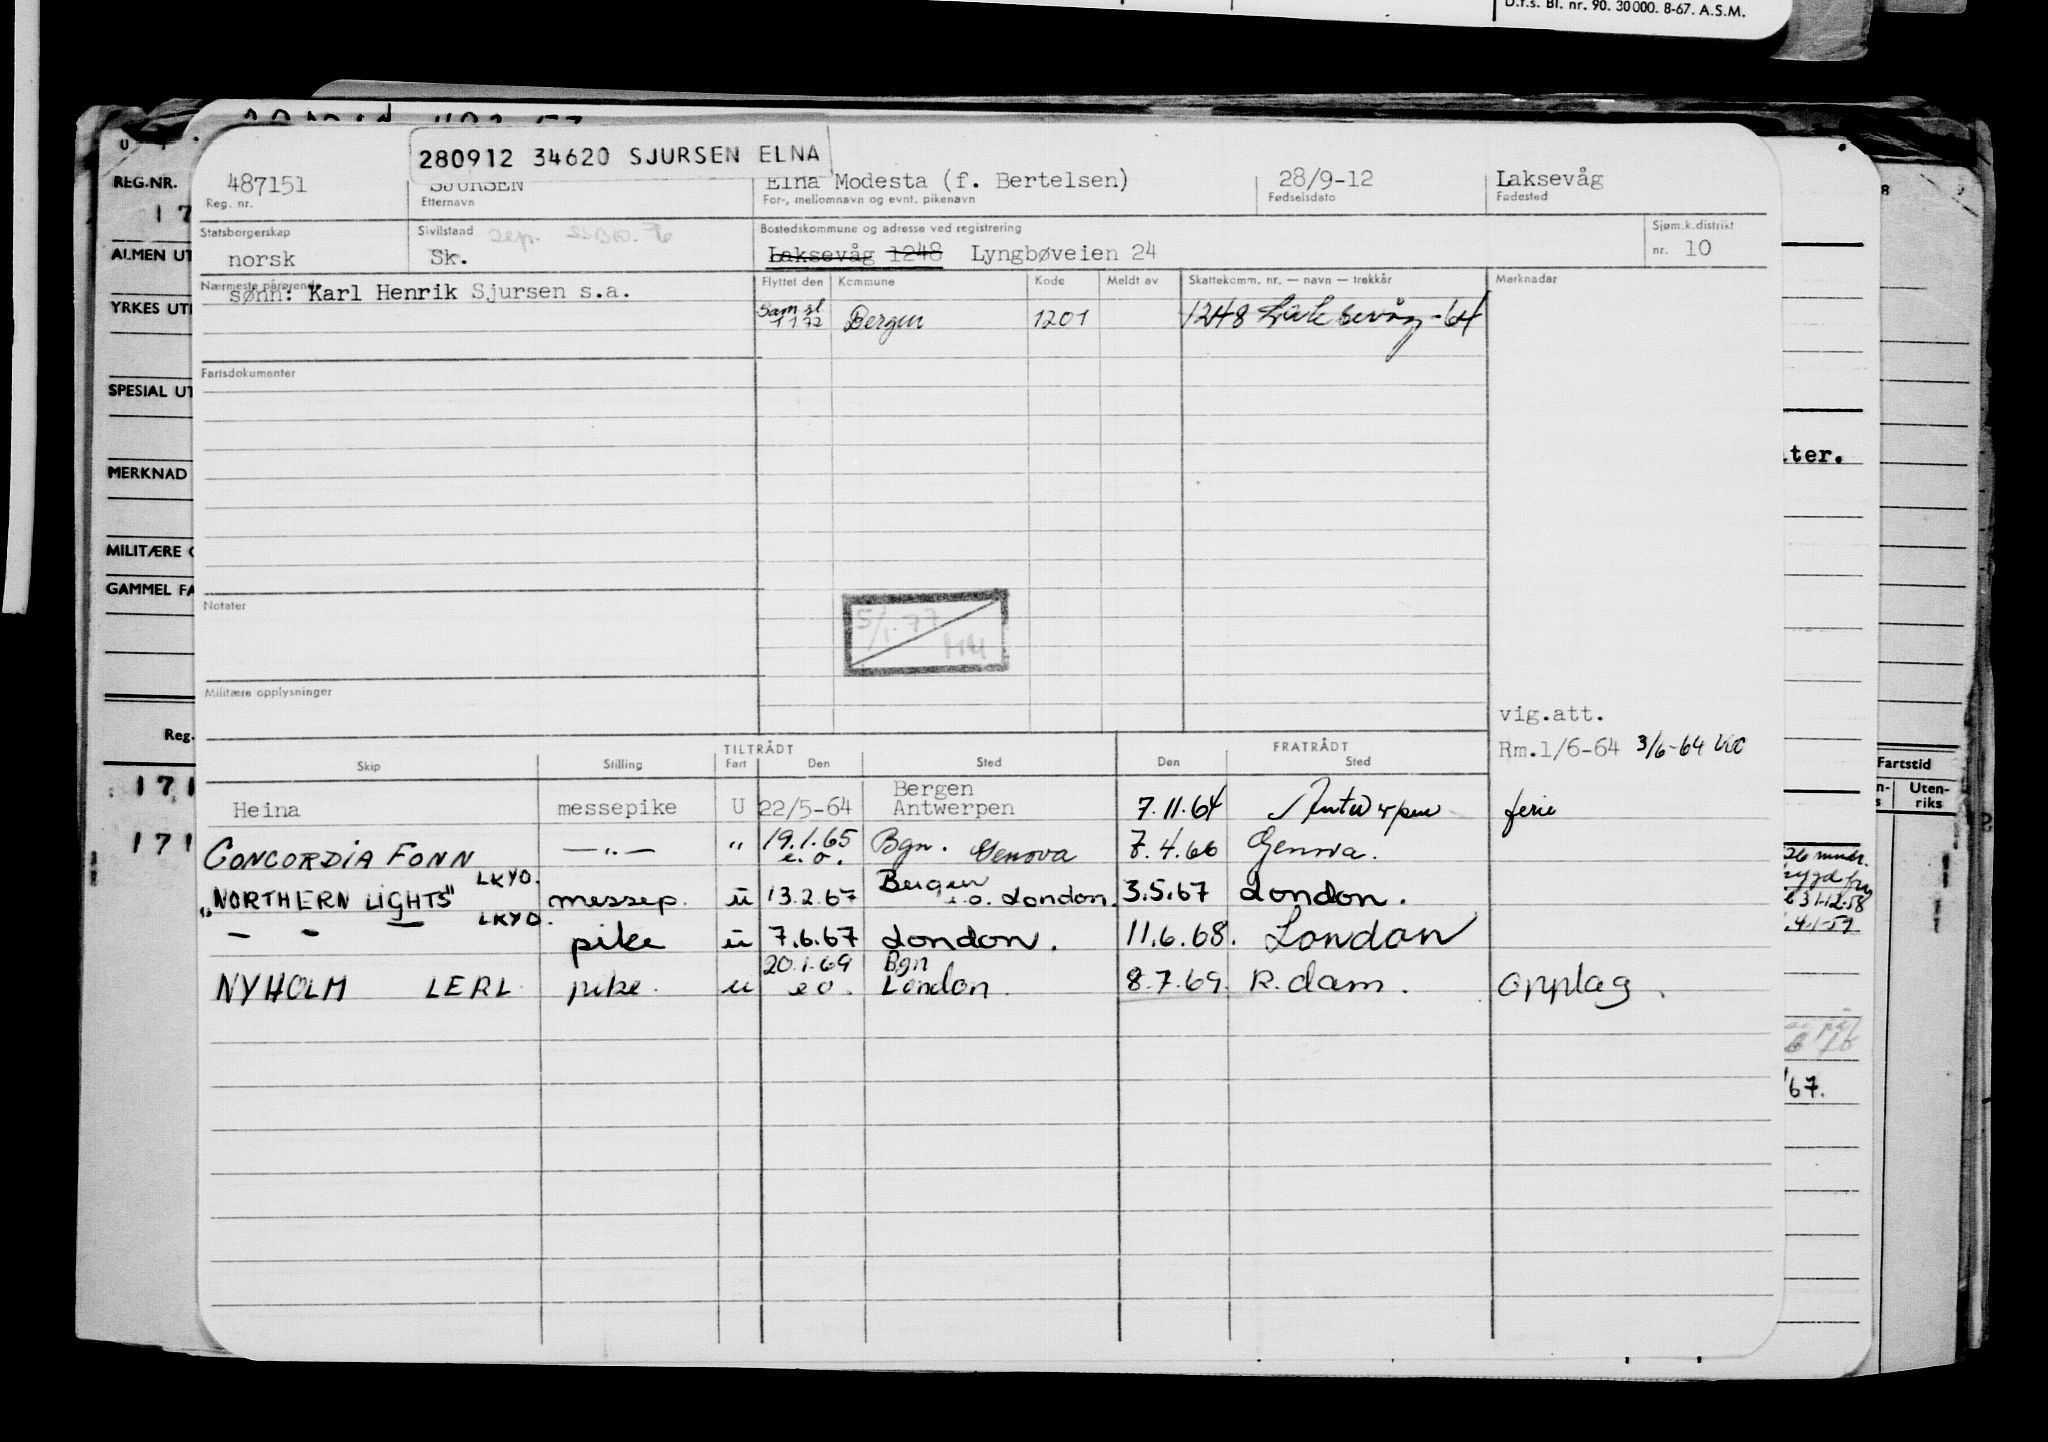 D.f.s. Bl. nr. 90. 30000. 8-67. A.S.M.
280912 34620 SJURSEN ELNA
REG.NR.
487151 SJURSEN Elna Modesta (f. Bertelsen) 28/9-12 Laksevåg
Reg. nr. Etternavn For-, mellomnavn og evnt. pikenavn Fødselsdato Fødested
Statsborgerskap Sivilstand sep. Bostedskommune og adresse ved registrering Sjøm.k.distrikt
ALMEN UT
norsk Sk. Laksevåg 1248 Lyngbøveien 24 nr. 10
Nærmeste pårørende Flyttet den Kommune Kode Meldt av Skattekomm. nr. — navn — trekkår Merknader
sønn: Karl Henrik Sjursen s.a.
YRKES UT
Sam.sl
1 1 72 Bergen 1201 1248 Laksevåg -64
Fartsdokumenter
SPESIAL UT
.ter.
MERKNAD
MILITÆRE
GAMMEL FA
Notater
5/1.77
Militære opplysninger
vig.att.
Reg.
Rm.1/6-64 3/6-64
TILTRÅDT FRATRÅDT
Skip Stilling Fart Den Sted Den Sted
Fartstid
Uten-
riks
171
Bergen
Heina messepike U 22/5-64 Antwerpen 7.11.64 Antwerpen ferie
171
CONCORDIA FONN —"— " 19.1.65 e.o. Bgn. Genova 7.4.66 Genova.
"NORTHERN LIGHTS" LKYO. messep. u 13.2.67 Bergen e.o. London. 3.5.67 London.
— — — LKYO. pike u 7.6.67 London. 11.6.68. London
NYHOLM LERL pike. u 20.1.69 e o. Bgn London. 8.7.69. R.dam. Opplag.
31-12-58
4.1-59
/67.